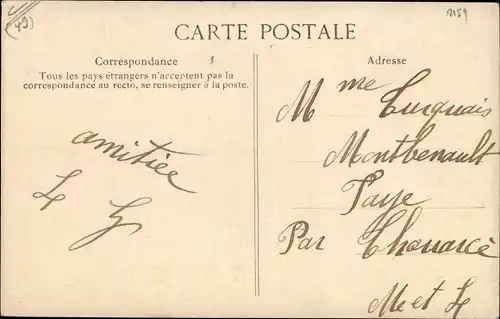 (49)
2159
CARTE POSTALE
Correspondance
Tous les pays étrangers n'acceptent pas la
correspondance au recto, se renseigner à la poste.
Adresse
amitiée
Mme Turquais
Montbenault
Faye
Par Thouarcé
M et L